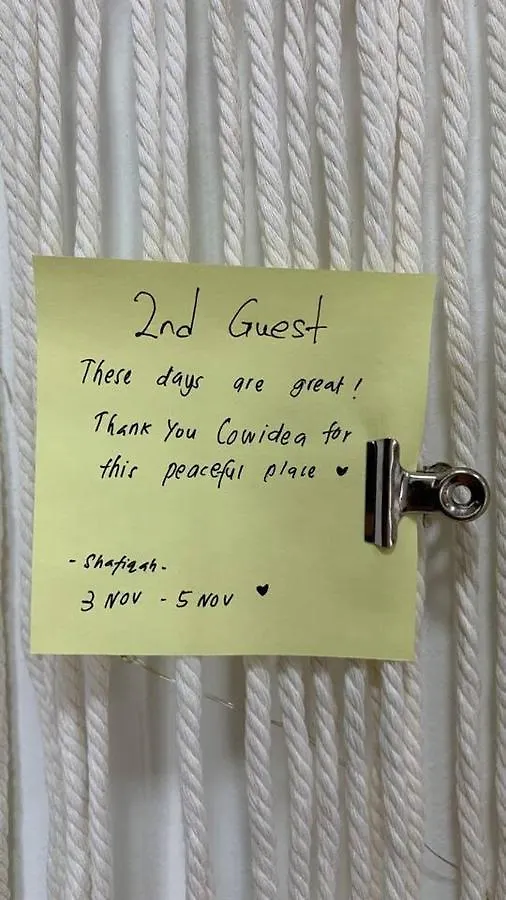 2nd Guest
These days are great!
Thank You Cowidea for
this peaceful place ♥
- Shafiqah -
3 NOV - 5 NOV ♥